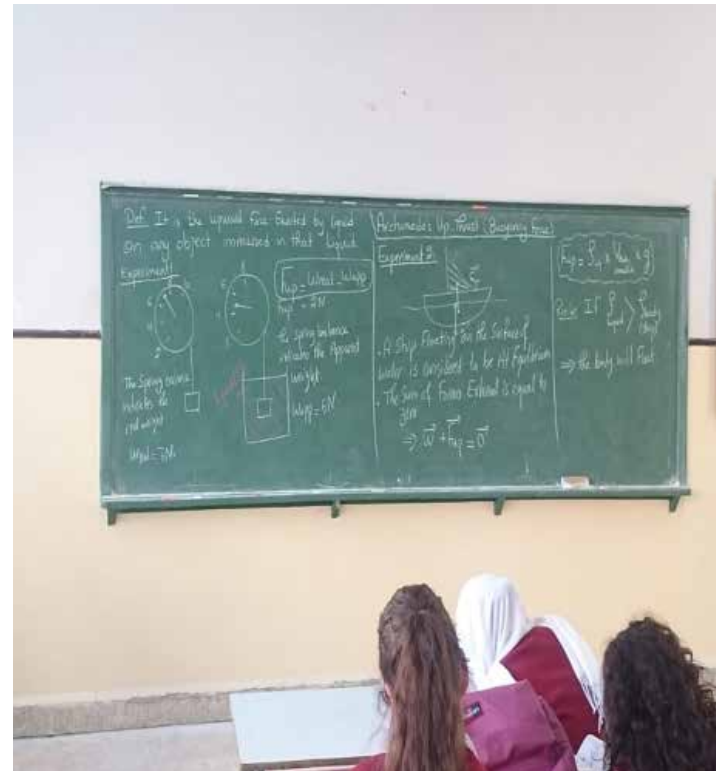 Def It is the upward force Exerted by liquid
on any object immersed in that liquid
Experiment
The Spring balance
indicates the
real weight
Wreal =
Fup = Wreal - Wapp
Fup = 2N
the spring balance
indicates the Apparent
weight
Wapp = 5N
Archimedes Up Thrust (Buoyancy Force)
Experiment 2
. A Ship Floating on the Surface of
water is considered to be At Equilibrium
. The Sum of Forces External is equal to
zero
⇒ W + Fup = 0
Fup = ρ x V x g
If ρ liquid > ρ body
⇒ the body will Float